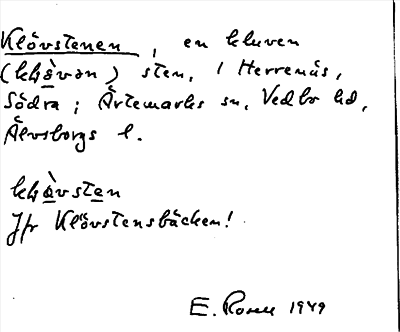 Klövstenen, en kluven
(kḷà̱vən) sten, i Herrenäs,
Södra; Ärtemarks sn, Vedbo hd,
Älvsborgs l.
kḷà̱vste̱n
Jfr Klövstensbäcken!
E. Rosell 1949